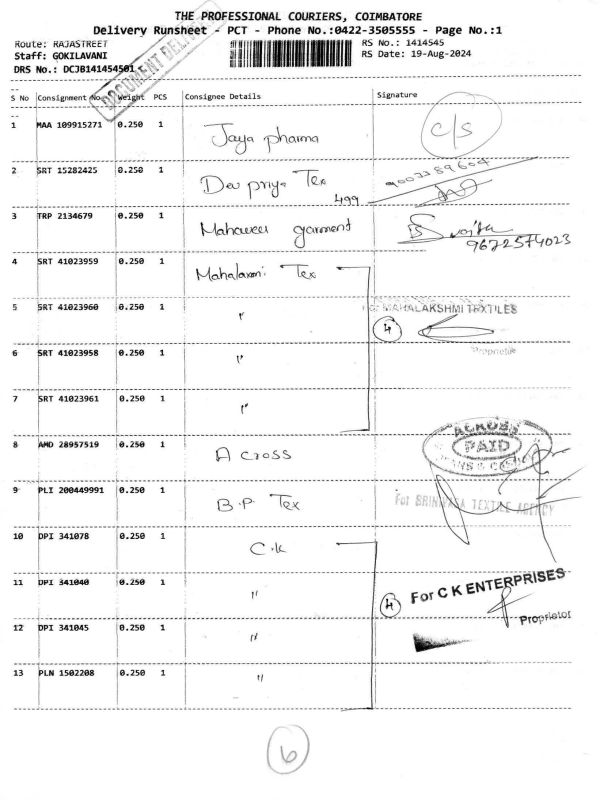 THE PROFESSIONAL COURIERS, COIMBATORE
Delivery Runsheet - PCT - Phone No.:0422-3505555 - Page No.:1
Route: RAJASTREET RS No.: 1414545
Staff: GOKILAVANI RS Date: 19-Aug-2024
DRS No.: DCJB141454501
DOCUMENT
S No Consignment No Weight PCS Consignee Details Signature
1 MAA 109915271 0.250 1 Jaya pharma C/S
2 SRT 15282425 0.250 1 Dev priya Tex 499 9003389604
3 TRP 2134679 0.250 1 Mahaveer garment 9672574023
4 SRT 41023959 0.250 1 Mahalaxmi Tex
5 SRT 41023960 0.250 1 " For MAHALAKSHMI TEXTILES
4
6 SRT 41023958 0.250 1 " Proprietor
7 SRT 41023961 0.250 1 "
8 AMD 28957519 0.250 1 A cross ACROSS PAID
9 PLI 200449991 0.250 1 B.P Tex For SRINIVASA TEXTILE AGENCY
10 DPI 341078 0.250 1 C.K
11 DPI 341040 0.250 1 " 4 For C K ENTERPRISES
12 DPI 341045 0.250 1 " Proprietor
13 PLN 1502208 0.250 1 "
6